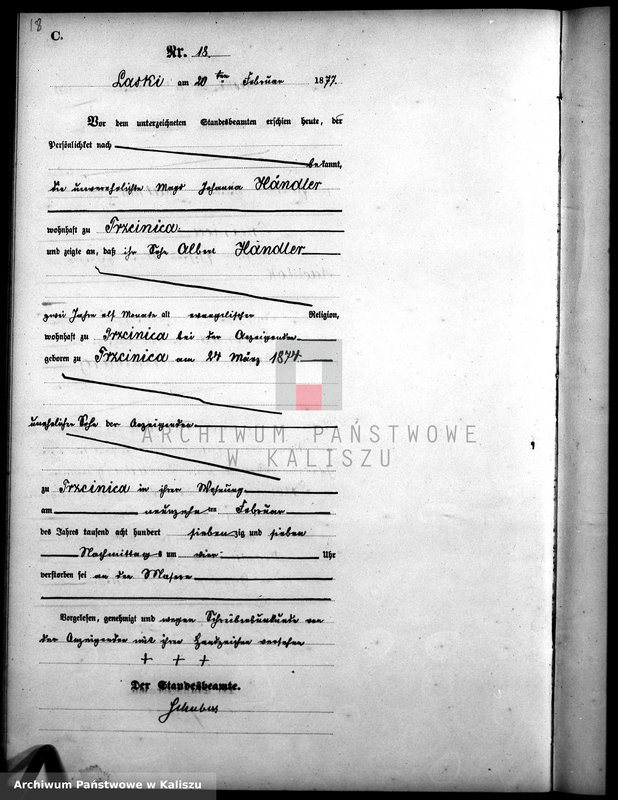 18
C.
Nr. 18.
Laski am 20 ten Februar 1877.
Vor dem unterzeichneten Standesbeamten erschien heute, der
Persönlichket nach
bekannt,
die unverehelichte Magd Johanna Händler
wohnhaft zu Trzcinica.
und zeigte an, daß ihr Sohn Albert Händler
zwei Jahre elf Monate alt evangelischer Religion,
wohnhaft zu Trzcinica bei der Anzeigenden
geboren zu Trzcinica am 24 März 1874
unehelicher Sohn der Anzeigenden
zu Trzcinica in ihrer Wohnung
am neunzehnten Februar
des Jahres tausend acht hundert siebenzig und sieben
Nachmittags um vier Uhr
verstorben sei an den Masern
Vorgelesen, genehmigt und wegen Schreibensunkunde von
der Anzeigenden mit ihren Handzeichen versehen
+ + +
Der Standesbeamte.
ARCHIWUM PAŃSTWOWE
W KALISZU
Archiwum Państwowe w Kaliszu